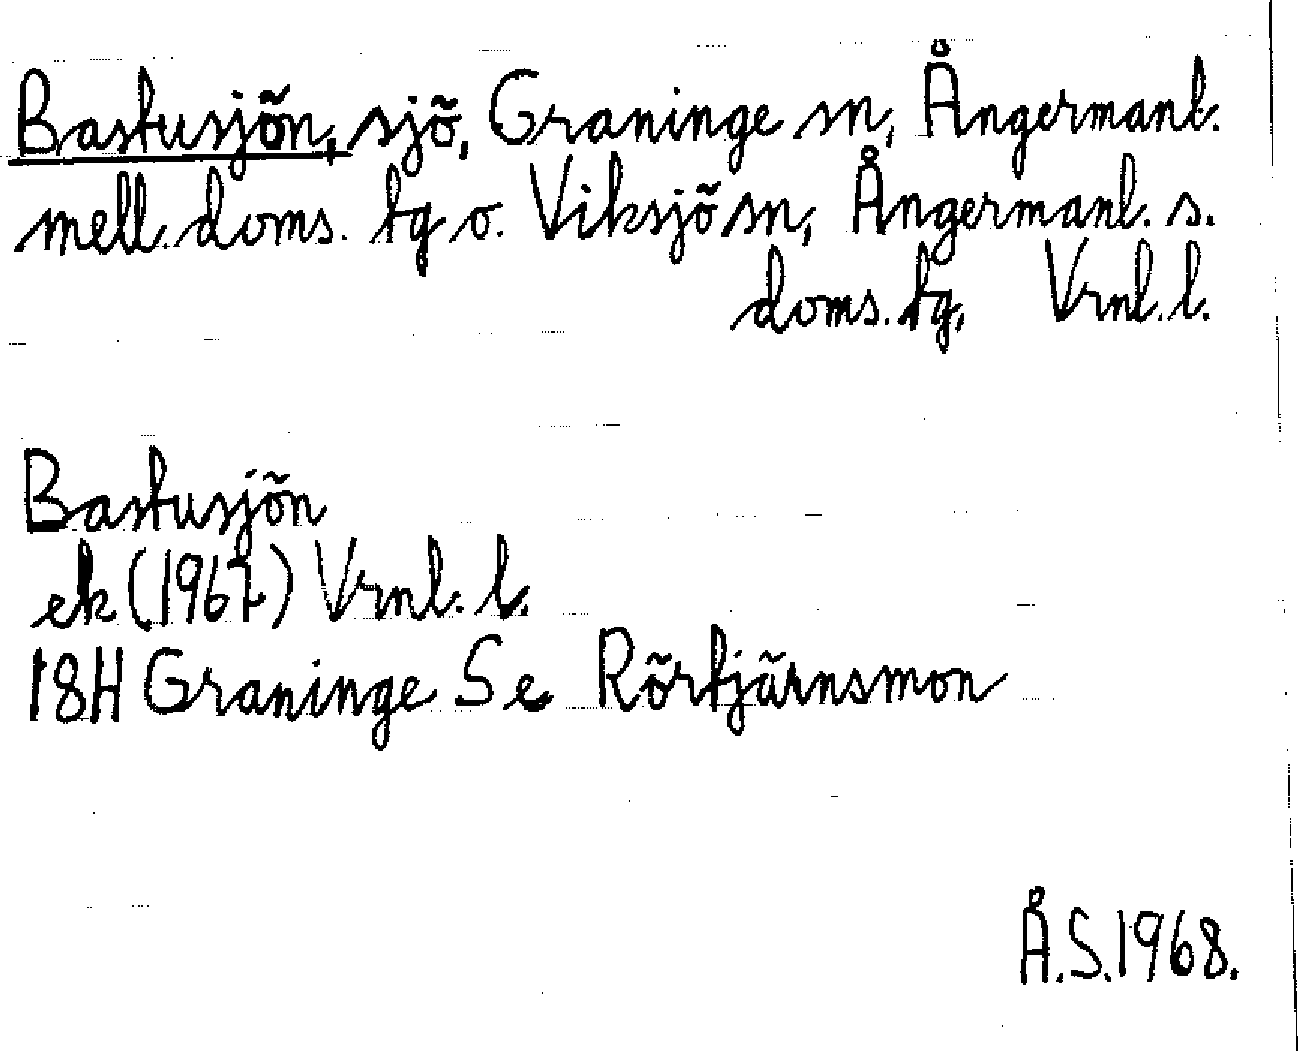 Bastusjön, sjö, Graninge sn, Ångermanl.
mell. doms. tg o. Viksjö sn, Ångermanl. s.
doms. tg, Vrnl. l.
Bastusjön
ek (1967) Vrnl. l.
18H Graninge Se Rörtjärnsmon
Å.S.1968.